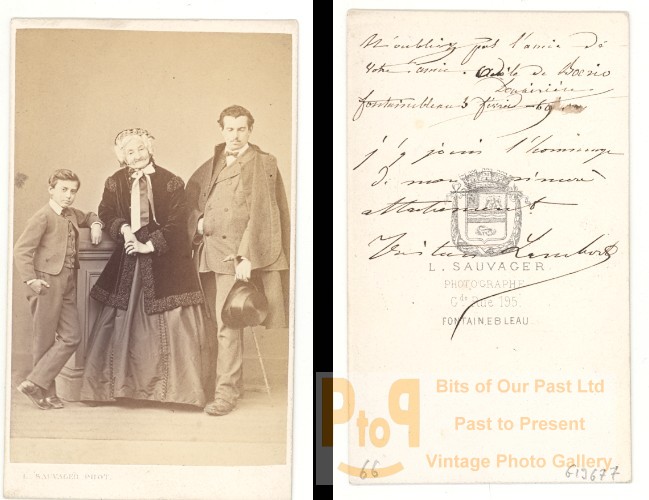 L. SAUVAGER PHOT.
N'oubliez pas l'amie de
votre amie. de Boerio
fontainebleau 3 février - 69
j'y joins l'hommage
de mon sincère
attachement
Tristan Lambert
L. SAUVAGER
PHOTOGRAPHE
Gde Rue 195.
FONTAINEBLEAU
PtoP
Bits of Our Past Ltd
Past to Present
Vintage Photo Gallery
66
613677